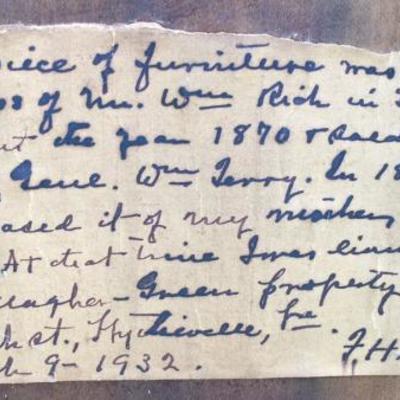 piece of furniture was
of Mr. Wm Rich in
the year 1870 &
Genl. Wm Terry. In 18
ased it of my mother
At that time I was
agher - Green property
st., Wytheville,
9 - 1932. F.H.